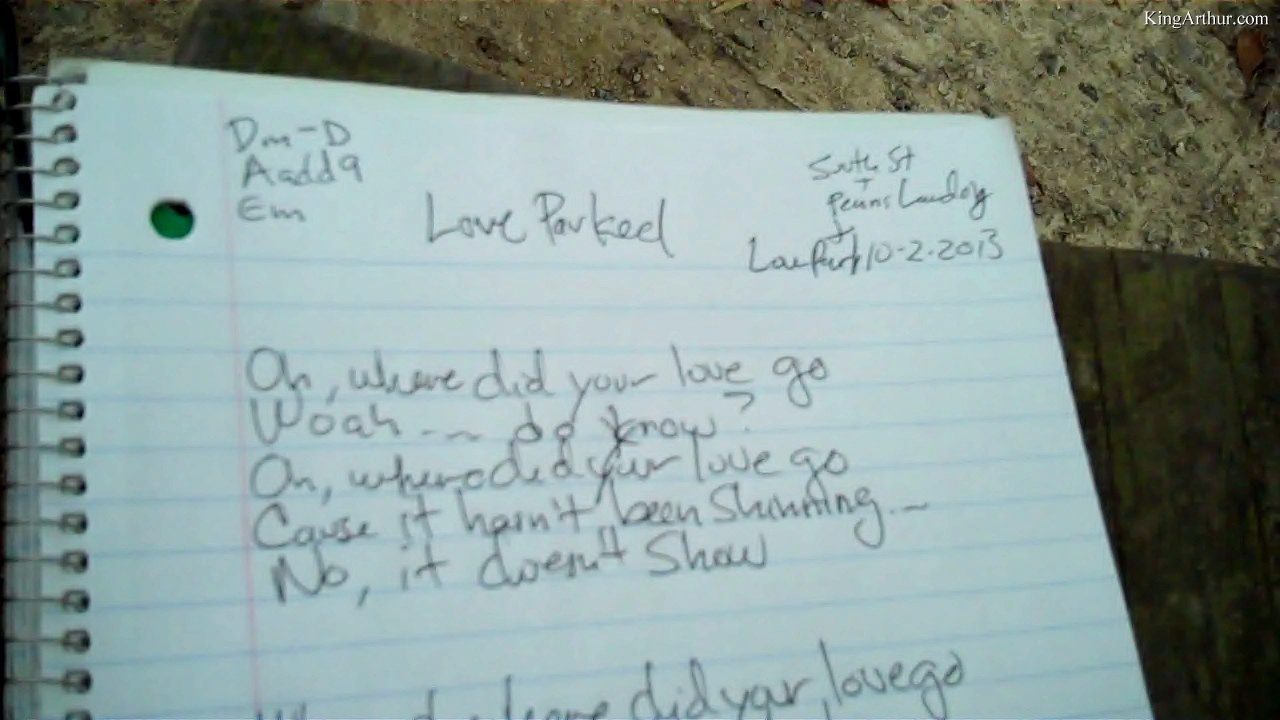 KingArthur.com
Dm-D
Aadd9
Em
Love Parked
South St
+
Penns Landing
+
Love Park 10-2-2013
Oh, where did your love go
Woah --~ do know?
Oh, where did your love go
Cause it hasn't been Shinning.--
No, it doesn't Show
where did your love go